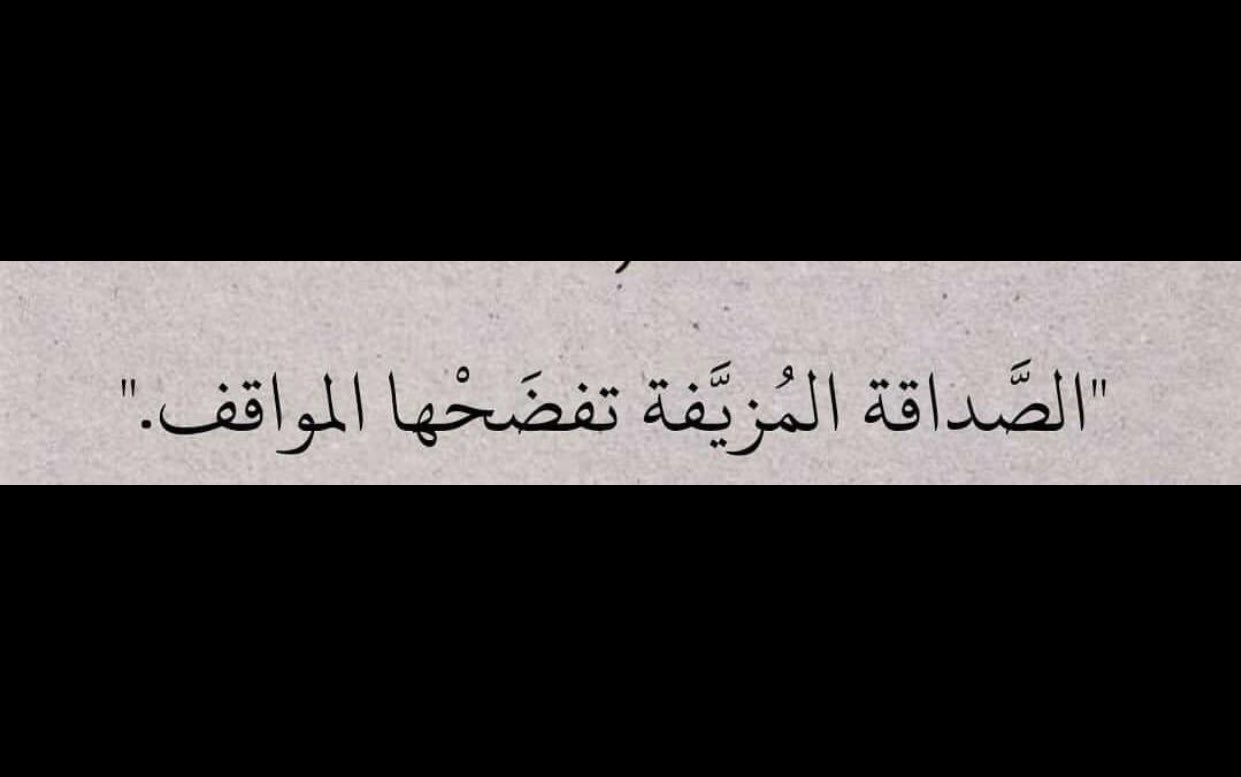 "الصَّداقة المُزيَّفة تفضَحْها المواقف."